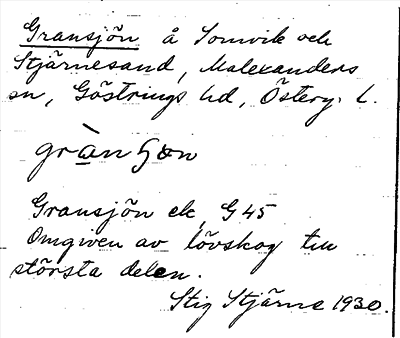 Gransjön å Somvik och
Stjärnesand, Malexanders
sn, Göstrings hd, Österg. l.
gràn ʃön
Gransjön ek, G 45
Omgiven av lövskog till
största delen.
Stig Stjärne 1930.